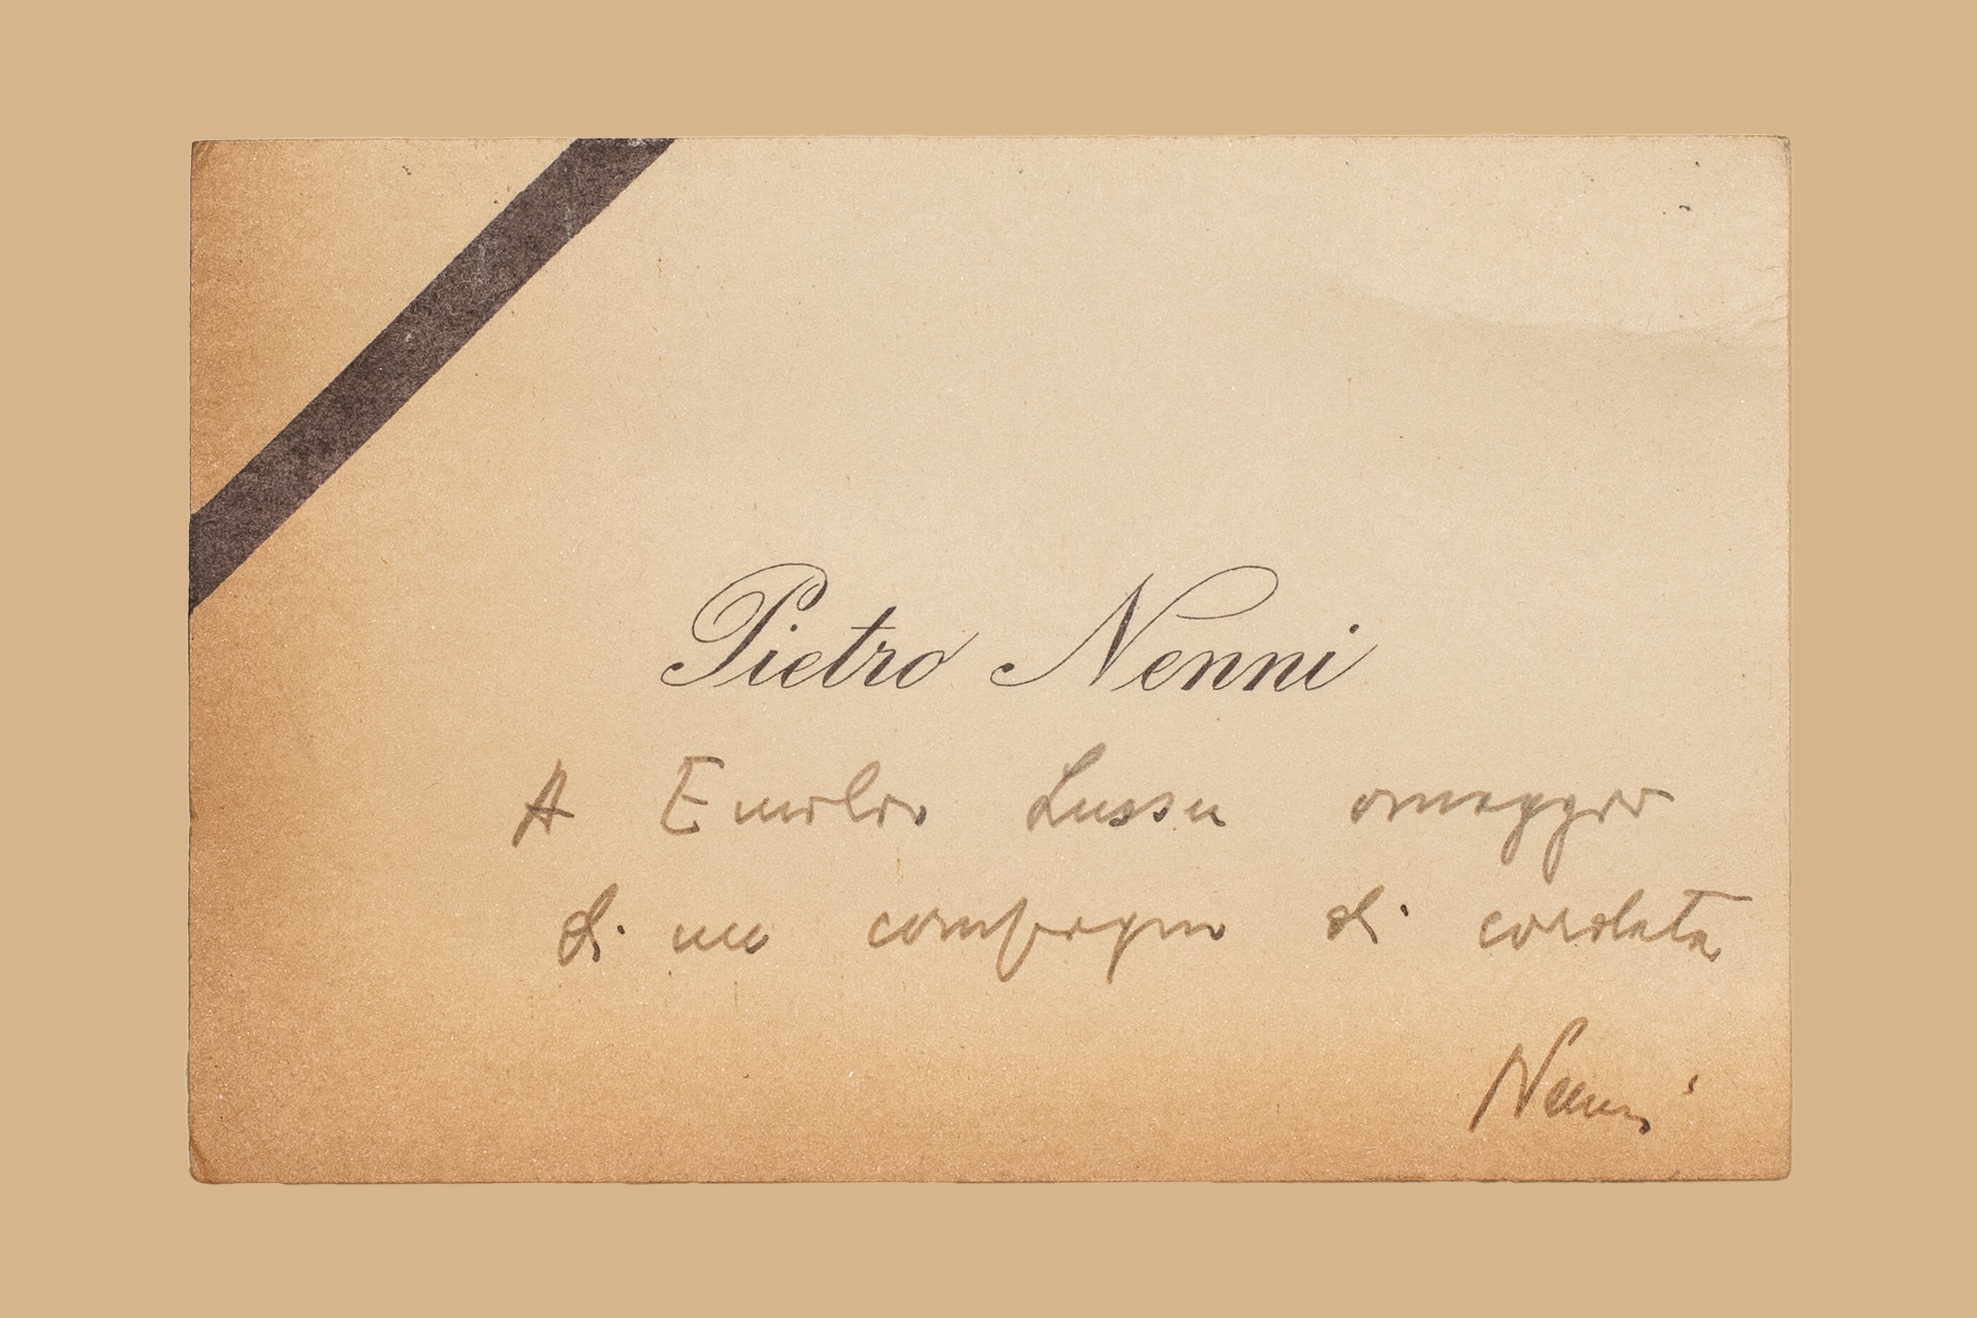 Pietro Nenni
A Emilio Lussu omaggio
di un compagno di cordata
Nenni